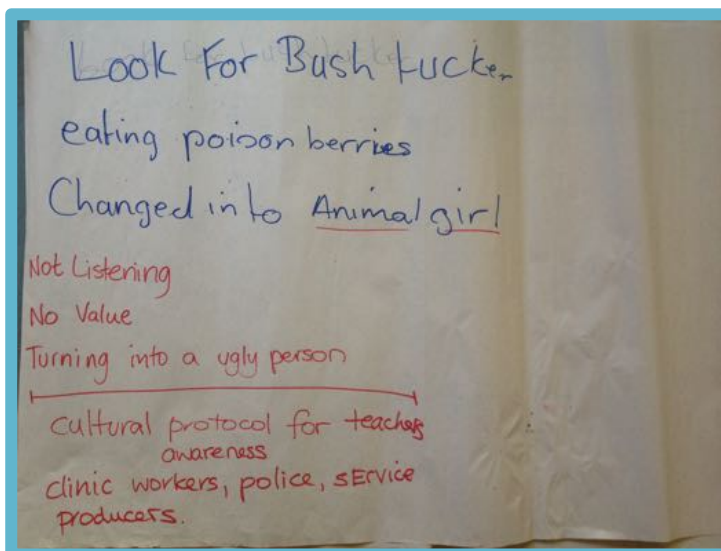 Look For Bush tucker
eating poison berries
Changed into Animal girl
Not Listening
No Value
Turning into a ugly person
cultural protocol for teachers
awareness
clinic workers, police, sErvice
producers.